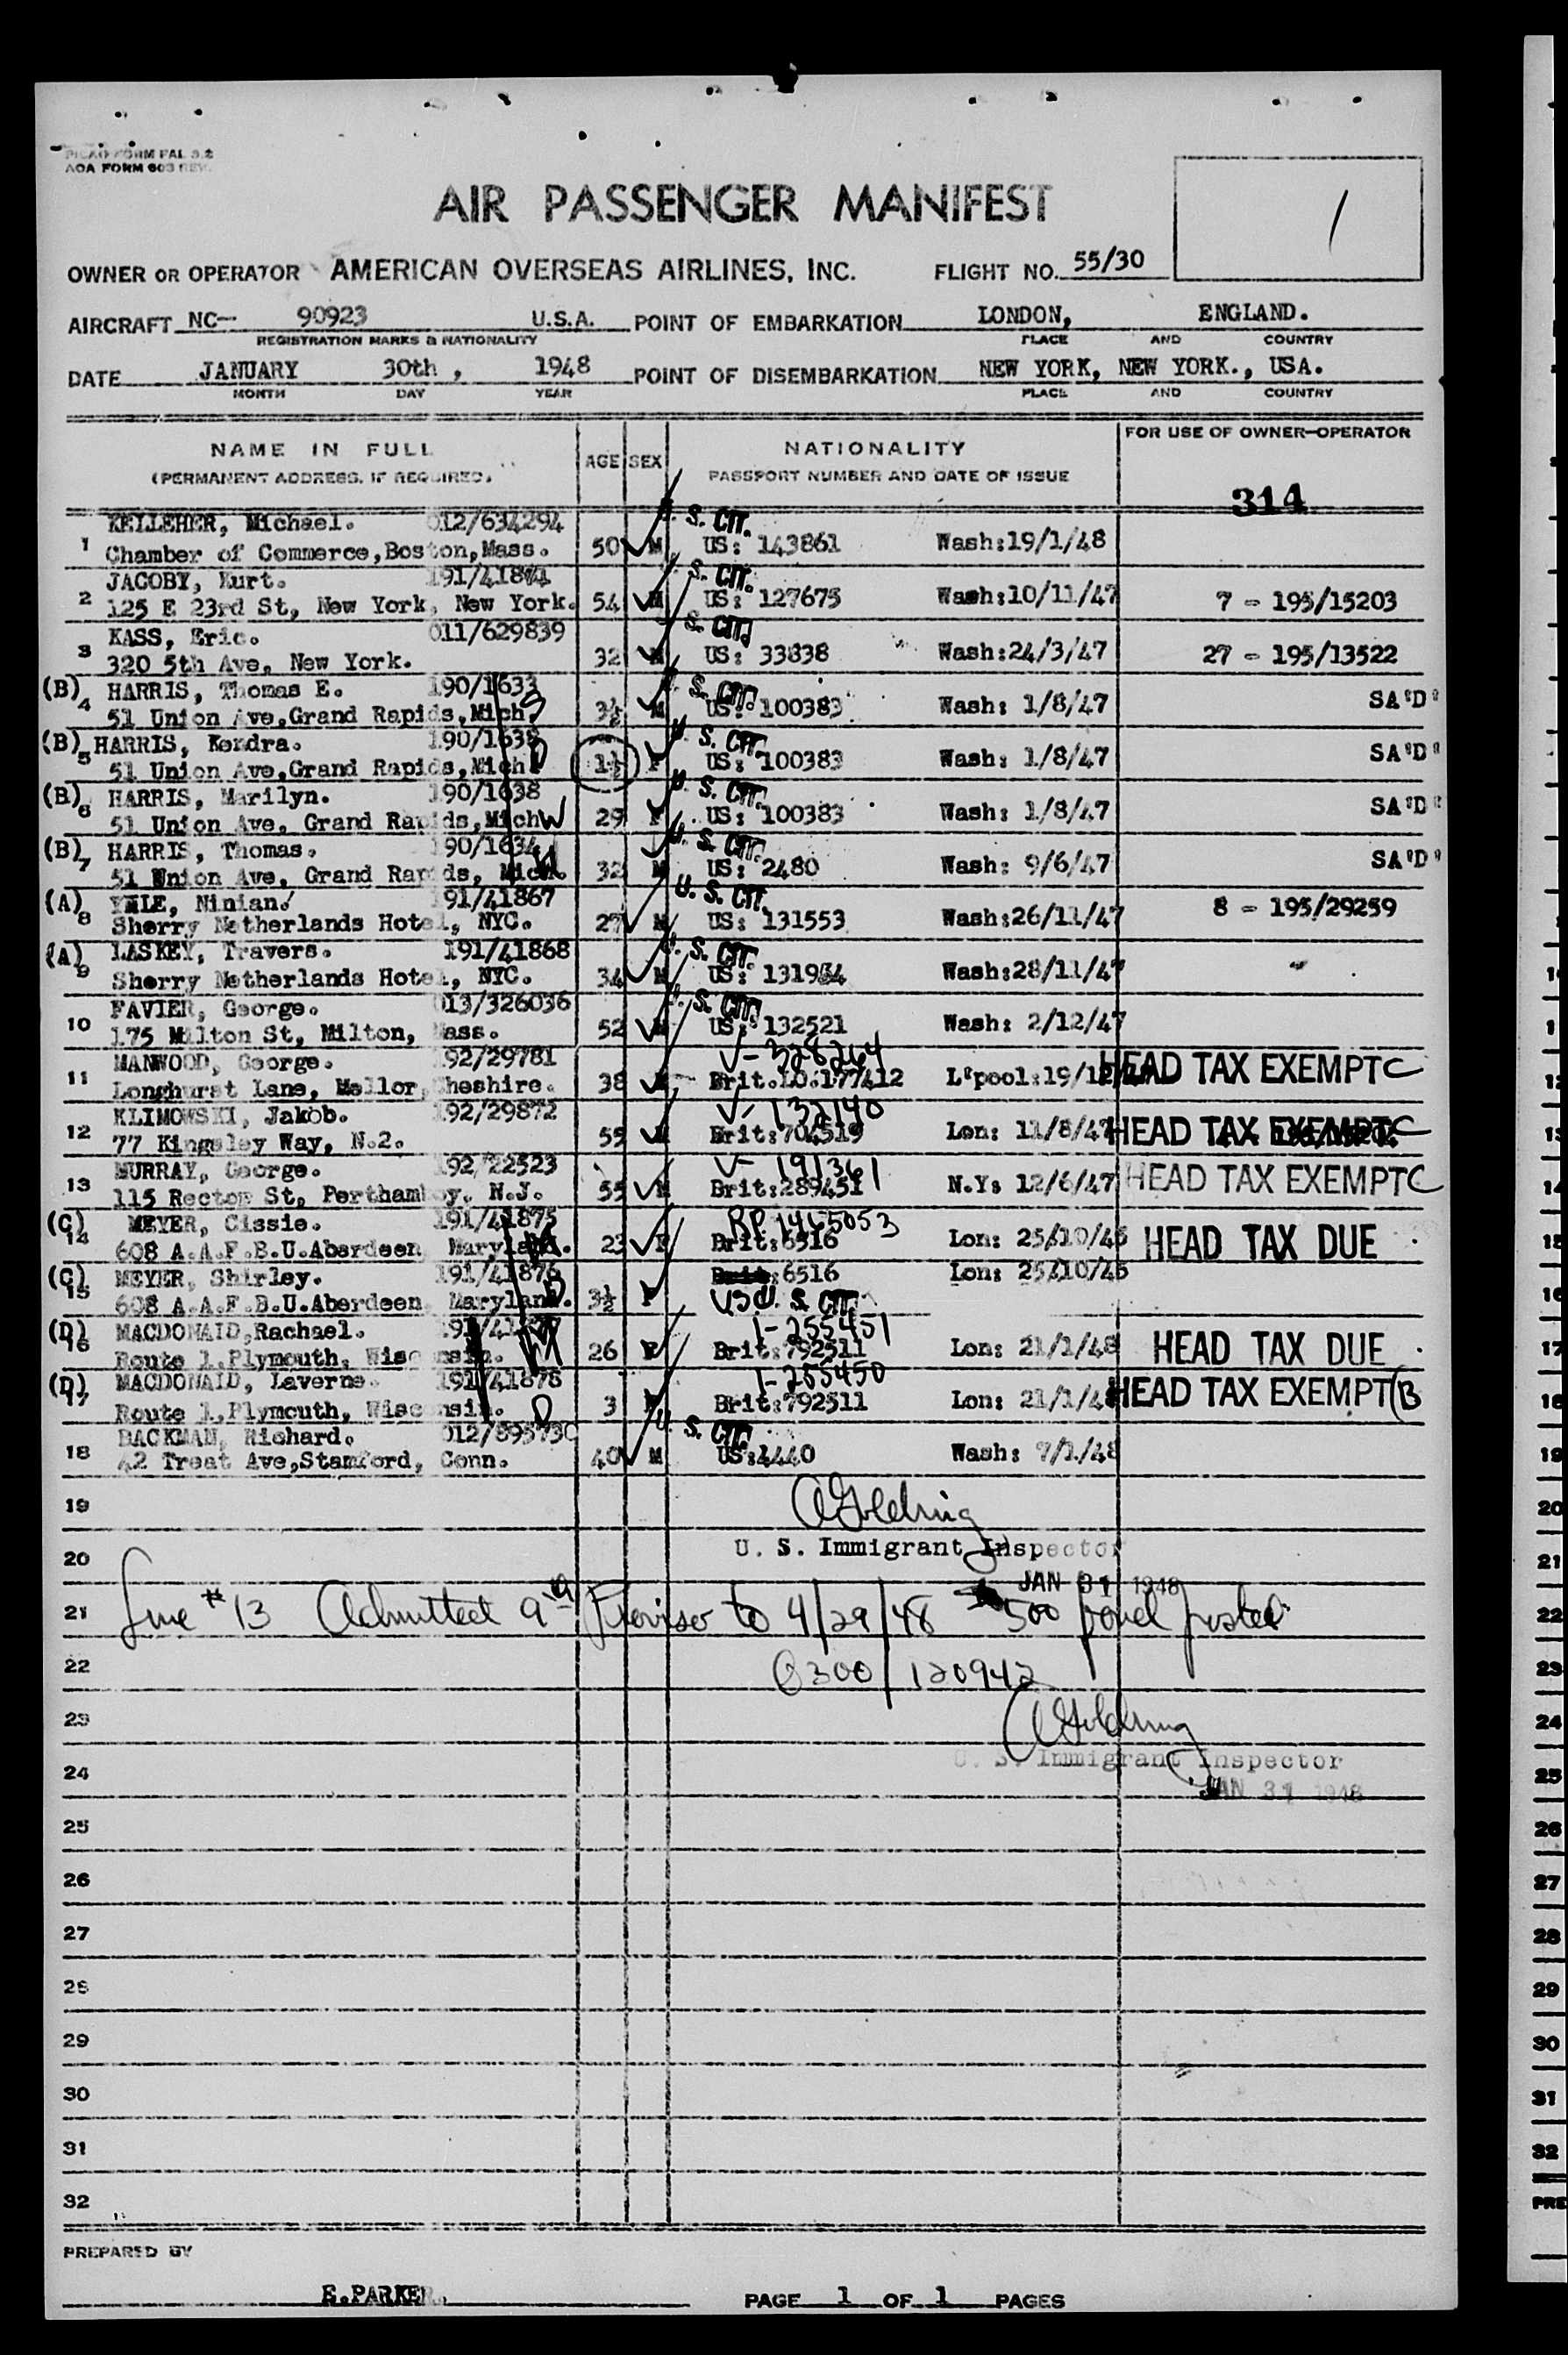 PICAO FORM FAL 3.2
AOA FORM 603 REV.
AIR PASSENGER MANIFEST
1
OWNER OR OPERATOR AMERICAN OVERSEAS AIRLINES, INC. FLIGHT NO. 55/30
AIRCRAFT NC- 90923 U.S.A. POINT OF EMBARKATION LONDON, ENGLAND.
REGISTRATION MARKS & NATIONALITY PLACE AND COUNTRY
DATE JANUARY 30th, 1948 POINT OF DISEMBARKATION NEW YORK, NEW YORK., USA.
MONTH DAY YEAR PLACE AND COUNTRY
NAME IN FULL AGE SEX NATIONALITY FOR USE OF OWNER-OPERATOR
(PERMANENT ADDRESS, IF REQUIRED. PASSPORT NUMBER AND DATE OF ISSUE
314
KELLEHER, Michael. 012/634294 U. S. CIT.
1 Chamber of Commerce,Boston,Mass. 50 M US: 143861 Wash:19/1/48
JACOBY, Kurt. 191/41871 S. CIT.
2 125 E 23rd St, New York, New York. 54 M US: 127675 Wash:10/11/47 7 - 195/15203
KASS, Eric. 011/629839 S. CIT.
3 320 5th Ave, New York. 32 M US: 33838 Wash:24/3/47 27 - 195/13522
(B) 4 HARRIS, Thomas E. 190/1633 U. S. CIT.
51 Union Ave,Grand Rapids,Mich. S 3½ M US: 100383 Wash: 1/8/47 SA'D'
(B) 5 HARRIS, Kendra. 190/1635 U. S. CIT.
51 Union Ave,Grand Rapids,Mich. D 1½ F US: 100383 Wash: 1/8/47 SA'D'
(B) 6 HARRIS, Marilyn. 190/1638 U. S. CIT.
51 Union Ave, Grand Rapids,Mich W 29 F US: 100383 Wash: 1/8/47 SA'D'
(B) 7 HARRIS, Thomas. 190/1634 U. S. CIT.
51 Union Ave, Grand Rapids, Mich. 32 M US: 2480 Wash: 9/6/47 SA'D'
(A) 8 YUILE, Ninian. 191/41867 U. S. CIT.
Sherry Netherlands Hotel, NYC. 27 M US: 131553 Wash:26/11/47 8 - 195/29259
(A) 9 LASKEY, Travers. 191/41868 U. S. CIT.
Sherry Netherlands Hotel, NYC. 34 M US: 131954 Wash:28/11/47
FAVIER, George. 013/326036 U. S. CIT.
10 175 Milton St, Milton, Mass. 52 M US: 132521 Wash: 2/12/47
MANWOOD, George. 192/29781 V- 328264
11 Longhurst Lane, Mellor, Cheshire. 38 M Brit.LO.177412 L'pool:19/12/47 HEAD TAX EXEMPT C
KLIMOWSKI, Jakob. 192/29872 V- 132140
12 77 Kingsley Way, N.2. 55 M Brit:704519 Lon: 11/8/47 HEAD TAX EXEMPT C
MURRAY, George. 192/22523 V- 191361
13 115 Rector St, Perthamboy, N.J. 55 M Brit:289451 N.Y: 12/6/47 HEAD TAX EXEMPT C
(C) 14 MEYER, Cissie. 191/41875 RP 1465053
608 A.A.F.B.U.Aberdeen Maryland. 23 F Brit:6516 Lon: 25/10/46 HEAD TAX DUE
(C) 15 MEYER, Shirley. 191/41876 Brit:6516 Lon: 25/10/46
608 A.A.F.B.U.Aberdeen Maryland. D 3½ F U. S. CIT.
(D) 16 MACDONALD,Rachael. I-255451
Route 1,Plymouth, Wisconsin. W 26 F Brit:792511 Lon: 21/1/48 HEAD TAX DUE
(D) 17 MACDONALD, Laverne. 191/41878 I-255450
Route 1,Plymouth, Wisconsin. D 3 F Brit:792511 Lon: 21/1/48 HEAD TAX EXEMPT (B
BACKMAN, Richard. 012/895730 U. S. CIT.
18 42 Treat Ave,Stamford, Conn. 40 M US:4440 Wash: 7/1/48
19 AGoldring
20 U. S. Immigrant Inspector
JAN 31 1948
21 Line #13 Admitted 9th Proviso to 4/29/48 500 bond posted
22 0300/120942
23 AGoldring
24 U. S. Immigrant Inspector
JAN 31 1948
25
26
27
28
29
30
31
32
PREPARED BY
E.PARKER. PAGE 1 OF 1 PAGES